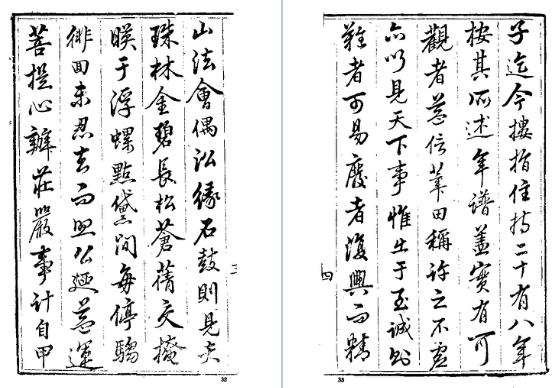 山法會偶緣石鼓則見夫
珠林金碧長松蒼蒨交掩
暎于浮螺點黛間每停驂
徘回未忍去而公慈運
菩提心辦莊嚴事計自甲
三
32
子迄今摟指住持二十有八年
按其所述年譜蓋實有可
觀者益信莘田稱許之不虛
亦以見天下事惟出于至誠則
難者可易廢者復興而精
四
33